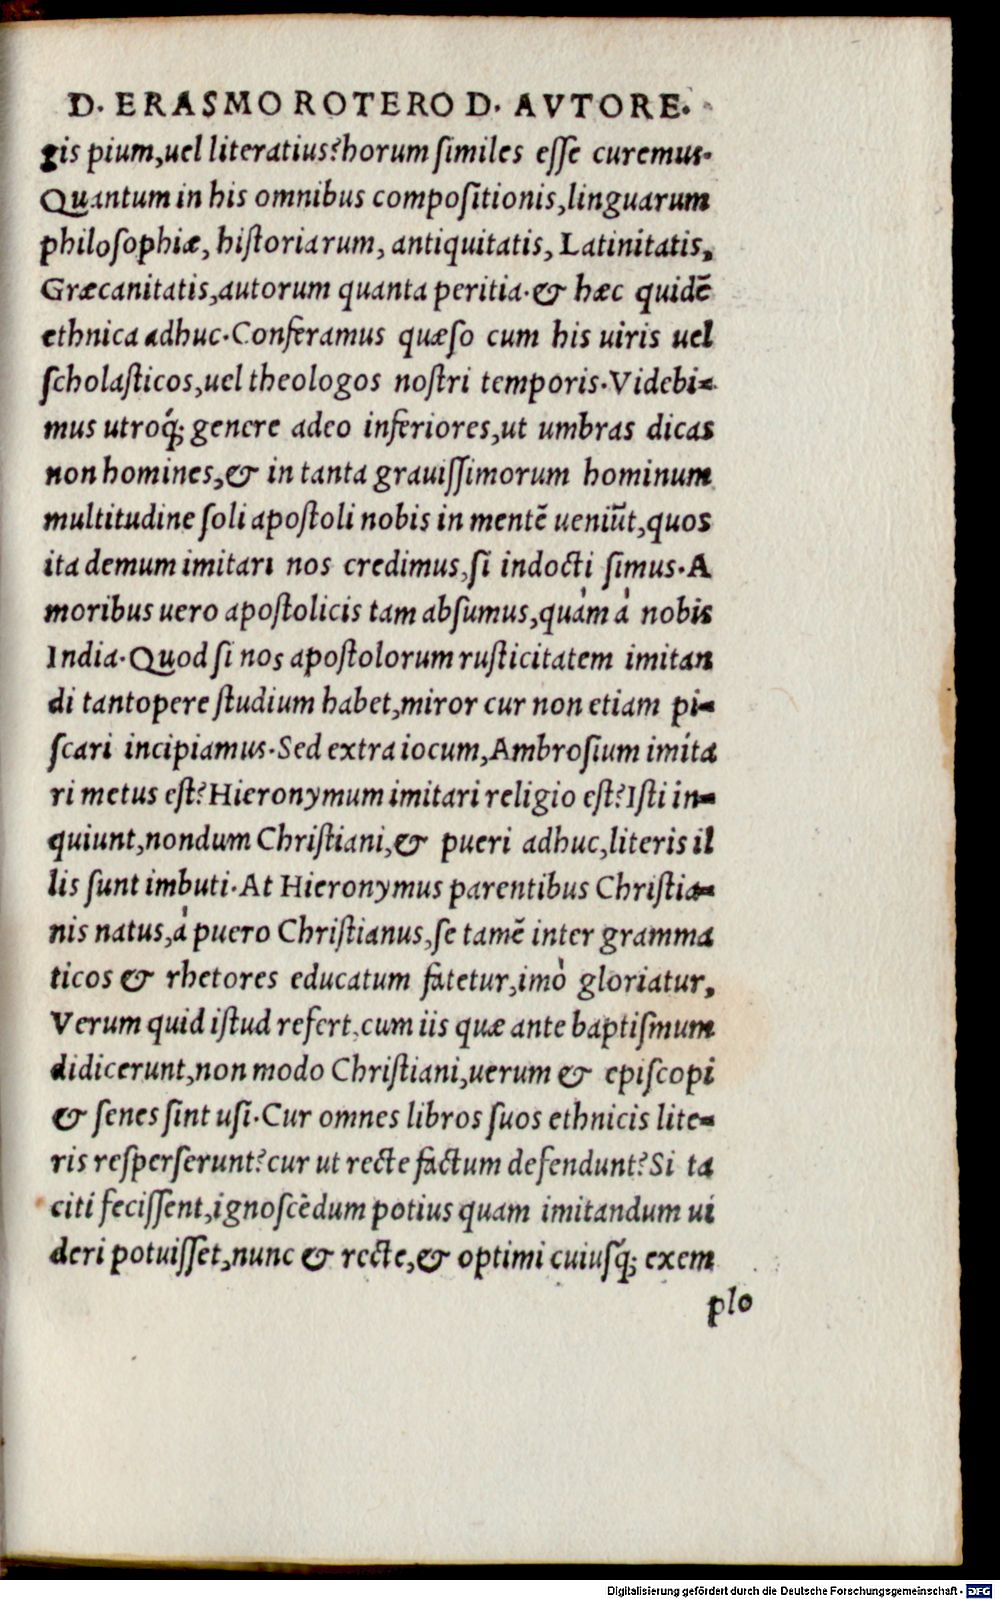 D. ERASMO ROTEROD. AVTORE.
gis pium,uel literatius?horum ſimiles eſſe curemus.
Quantum in his omnibus compoſitionis,linguarum
philoſophiæ, hiſtoriarum, antiquitatis, Latinitatis,
Græcanitatis,autorum quanta peritia.& hæc quidē
ethnica adhuc.Conferamus quæſo cum his uiris uel
ſcholaſticos,uel theologos noſtri temporis.Videbi-
mus utroq́; genere adeo inferiores,ut umbras dicas
non homines,& in tanta grauiſſimorum hominum
multitudine ſoli apoſtoli nobis in mentē ueniūt,quos
ita demum imitari nos credimus,ſi indocti ſimus.A
moribus uero apoſtolicis tam abſumus,quàm à nobis
India.Quod ſi nos apoſtolorum ruſticitatem imitan
di tantopere ſtudium habet,miror cur non etiam pi-
ſcari incipiamus.Sed extra iocum,Ambroſium imita
ri metus eſt?Hieronymum imitari religio eſt?Iſti in-
quiunt,nondum Chriſtiani,& pueri adhuc,literis il
lis ſunt imbuti.At Hieronymus parentibus Chriſtia-
nis natus,à puero Chriſtianus,ſe tamē inter gramma
ticos & rhetores educatum fatetur,imò gloriatur,
Verum quid iſtud refert,cum iis quæ ante baptiſmum
didicerunt,non modo Chriſtiani,uerum & epiſcopi
& ſenes ſint uſi.Cur omnes libros ſuos ethnicis lite-
ris reſperſerunt?cur ut recte factum defendunt?Si ta
citi feciſſent,ignoſcēdum potius quam imitandum ui
deri potuiſſet,nunc & recte,& optimi cuiuſq́; exem
plo
Digitalisierung gefördert durch die Deutsche Forschungsgemeinschaft - DFG